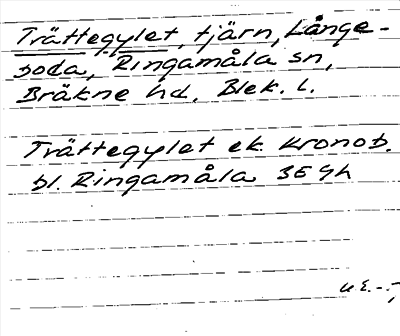 Trättegylet, tjärn, Långe-
boda, Ringamåla sn,
Bräkne hd. Blek. l.
Trättegylet ek. Kronob.
bl. Ringamåla 3E 4h